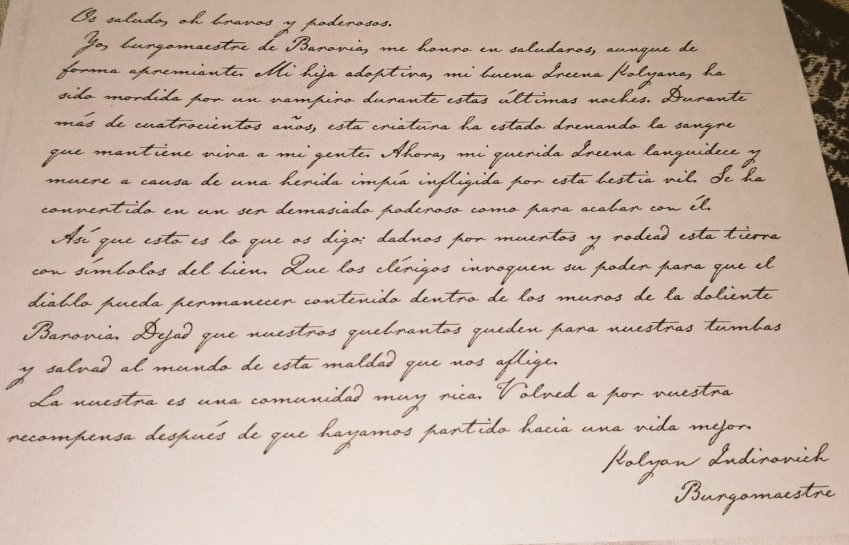 Os saludo, oh bravos y poderosos.
Yo, burgomaestre de Barovia, me honro en saludaros, aunque de
forma apremiante. Mi hija adoptiva, mi buena Ireena Kolyana, ha
sido mordida por un vampiro durante estas últimas noches. Durante
más de cuatrocientos años, esta criatura ha estado drenando la sangre
que mantiene viva a mi gente. Ahora, mi querida Ireena languidece y
muere a causa de una herida impía infligida por esta bestia vil. Se ha
convertido en un ser demasiado poderoso como para acabar con él.
Así que esto es lo que os digo: dadnos por muertos y rodead esta tierra
con símbolos del bien. Que los clérigos invoquen su poder para que el
diablo pueda permanecer contenido dentro de los muros de la doliente
Barovia. Dejad que nuestros quebrantos queden para nuestras tumbas
y salvad al mundo de esta maldad que nos aflige.
La nuestra es una comunidad muy rica. Volved a por vuestra
recompensa después de que hayamos partido hacia una vida mejor.
Kolyan Indirovich
Burgomaestre